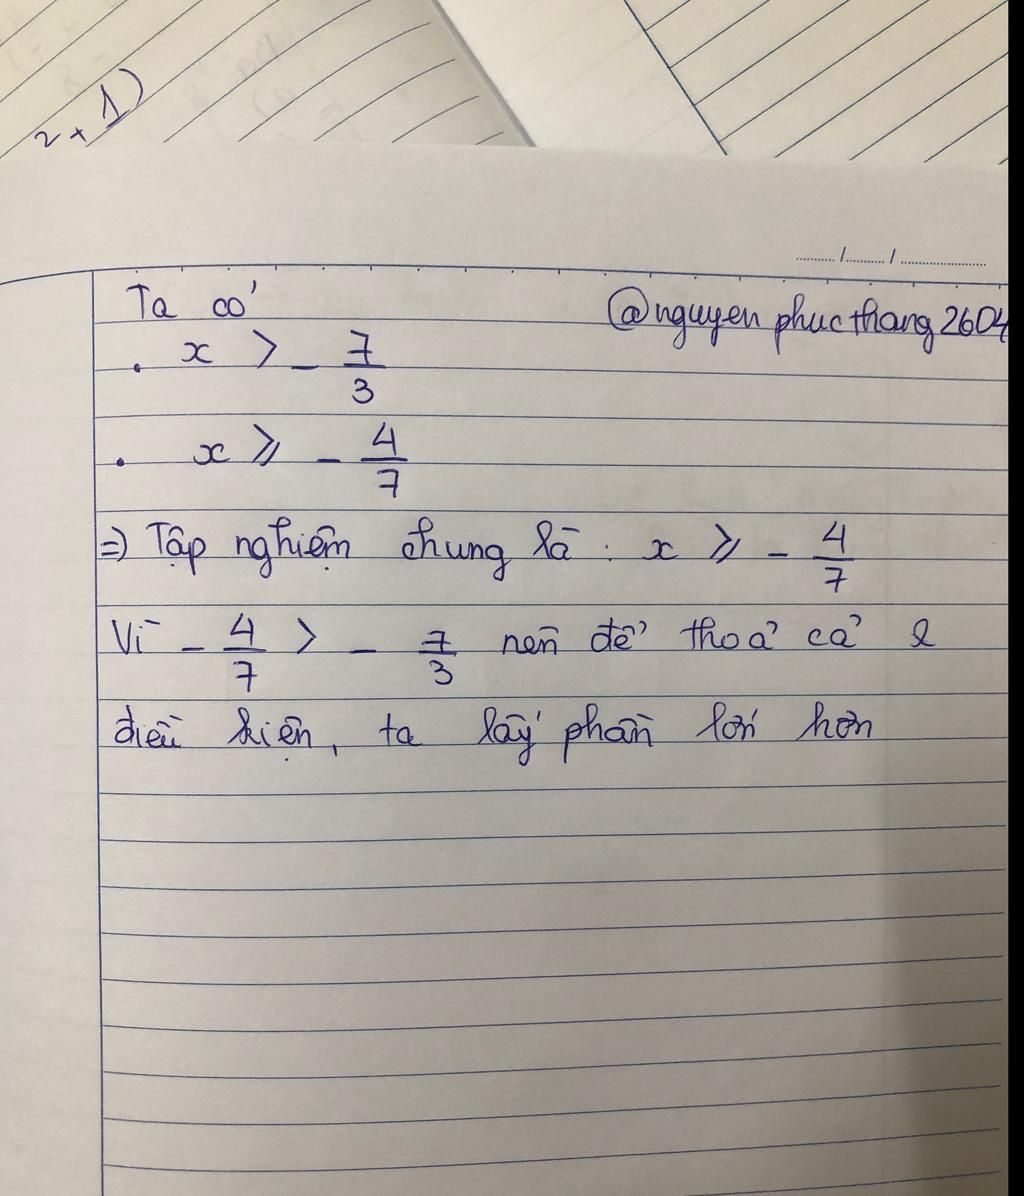 2 + 1)
Ta có @nguyen phuc thang 2604
. x > - 7/3
. x ⩾ - 4/7
=) Tập nghiệm chung là : x ⩾ - 4/7
Vì - 4/7 > - 7/3 nên để thoả cả 2
điều kiện, ta lấy phần lớn hơn